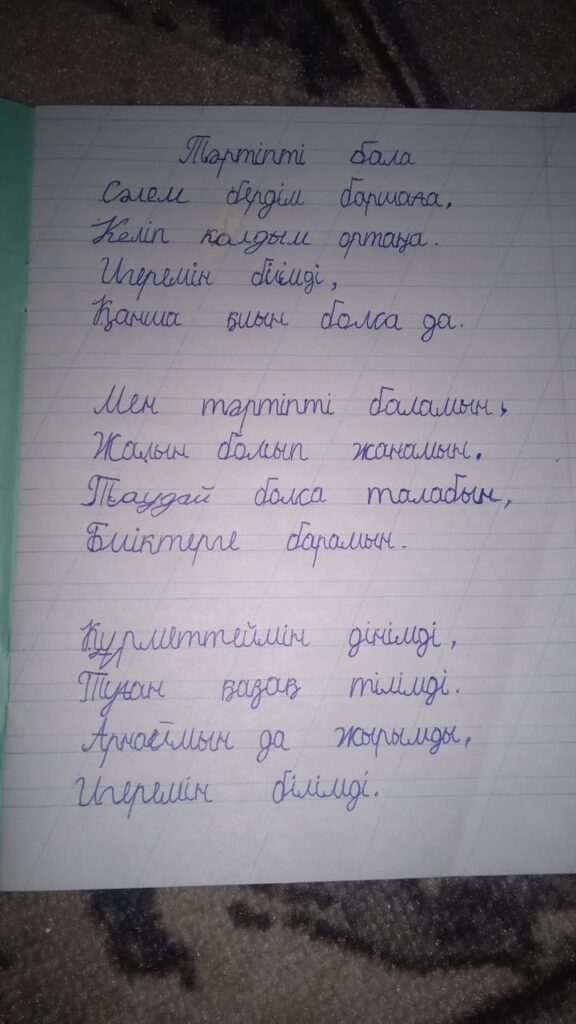 Тәртіпті бала
Сәлем бердім баршаға,
Келіп қалдым ортаңа.
Игеремін білімді,
Қанша қиын болса да.
Мен тәртіпті баламын,
Жалын болып жанамын.
Таудай болса талабың,
Биіктерге барамын.
Құрметтеймін дінімді,
Туған қазақ тілімді.
Арнаймын да жырымды,
Игеремін білімді.